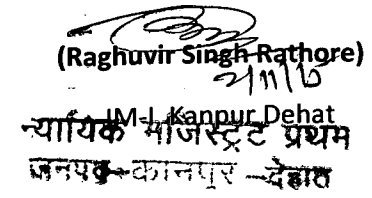 (Raghuvir Singh Rathore)
2/11/17
JM-I, Kanpur Dehat
न्यायिक मजिस्ट्रेट प्रथम
जनपद-कानपुर-देहात